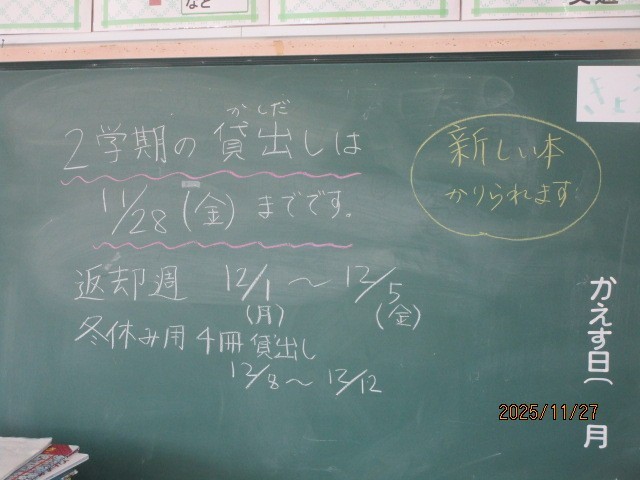 など
かしだ
2学期の貸出しは
11/28(金)までです。
返却週 12/1～12/5
(月) (金)
冬休み用4冊貸出し
12/8～12/12
新しい本
かりられます
きょ
かえす日(
月
2025/11/27